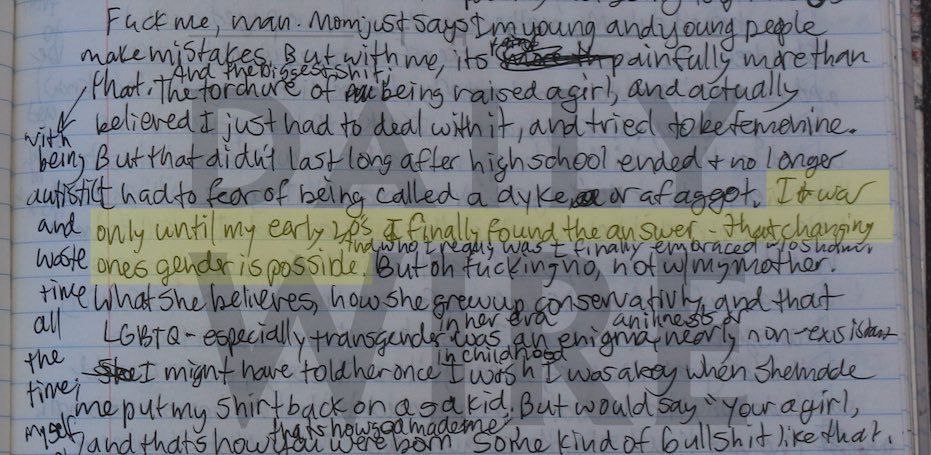 Fuck me, man. Mom just says I'm young and young people
make mistakes. But with me, its painfully more than
And the biggest shit,
that. The torchure of being raised a girl, and actually
believed I just had to deal with it, and tried to be femenine.
But that didn't last long after high school ended + no longer
had to fear of being called a dyke or a faggot. It war
only until my early 20's I finally found the answer - that changing
And who I really was I finally embraced
ones gender is possible. But oh fucking no, not w/ my mother.
What she believes, how she grew up conservativly, and that
in her era
LGBTQ - especially transgender was an enigma, nearly non-existant
in childhood
I might have told her once I wish I was a boy when she made
me put my shirt back on as a kid. But would say "your a girl,
thats how god made me
and thats how you were born" some kind of bullshit like that.
with
being
autistic
and
waste
time
all
the
time,
myself
DAILY
WIRE